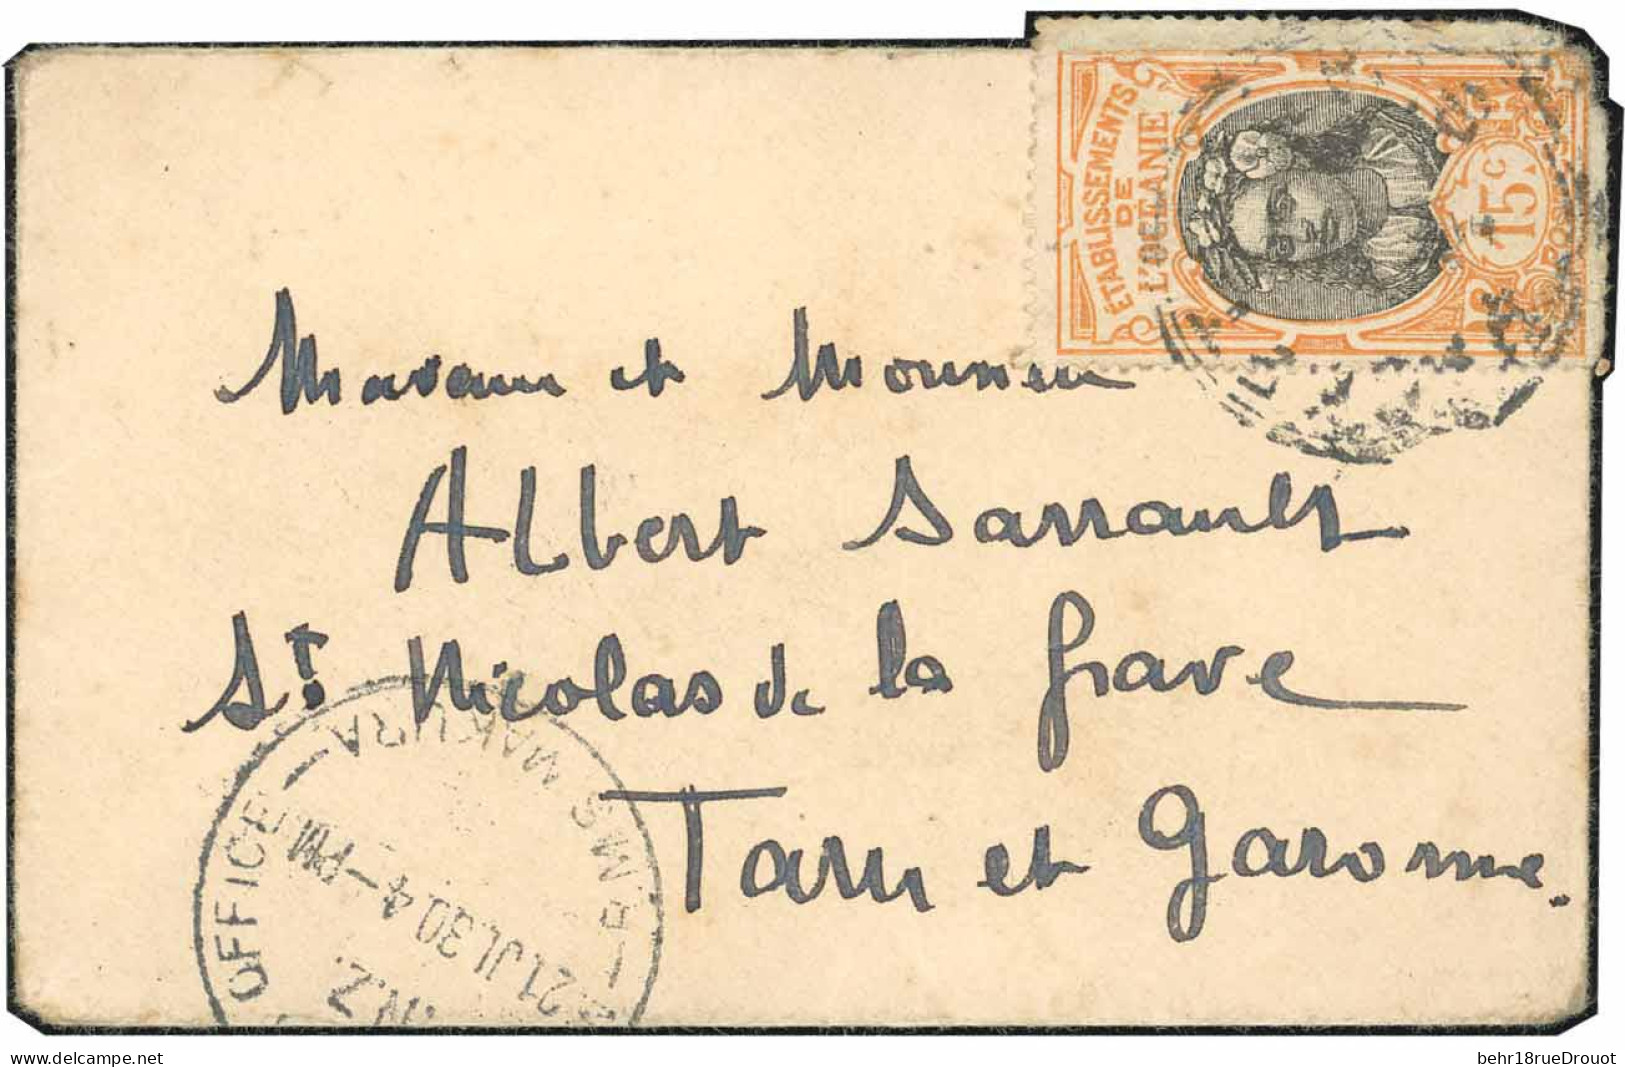 ÉTABLISSEMENTS
DE
L'OCÉANIE
15c
Madame et Monsieur
Albert Sarrault
St Nicolas de la Grave
Tarn et Garonne.
OFFICE — R.M.S. MAKURA —
4 - PM
21 JL 30
N.Z.
www.delcampe.net
behr18rueDrouot